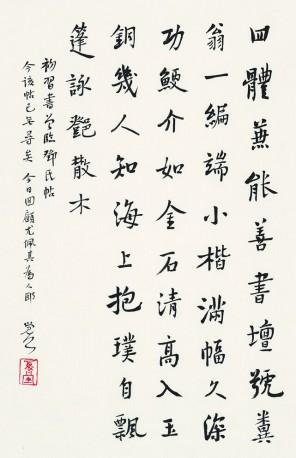 四體兼能善書壇號糞
翁一編端小楷滿幅久深
功鯁介如金石清高入玉
銅幾人知海上抱璞自飄
篷詠鄧散木
初習書曾臨鄧氏帖
今該帖已無尋矣今日回顧尤佩其為人耶